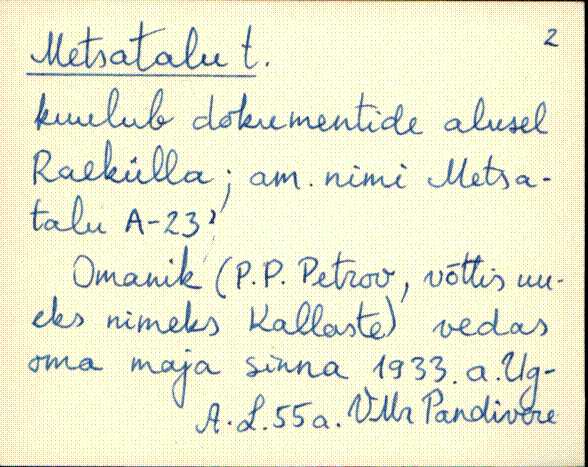 2
Metsatalu t.
kuulub dokumentide alusel
Raekülla; am. nimi Metsa-
talu A-23
Omanik (P.P. Petrov, võttis uu-
eks nimeks Kallaste) vedas
oma maja sinna 1933. a. Ug-
A.L. 55a. VMr Pandivere